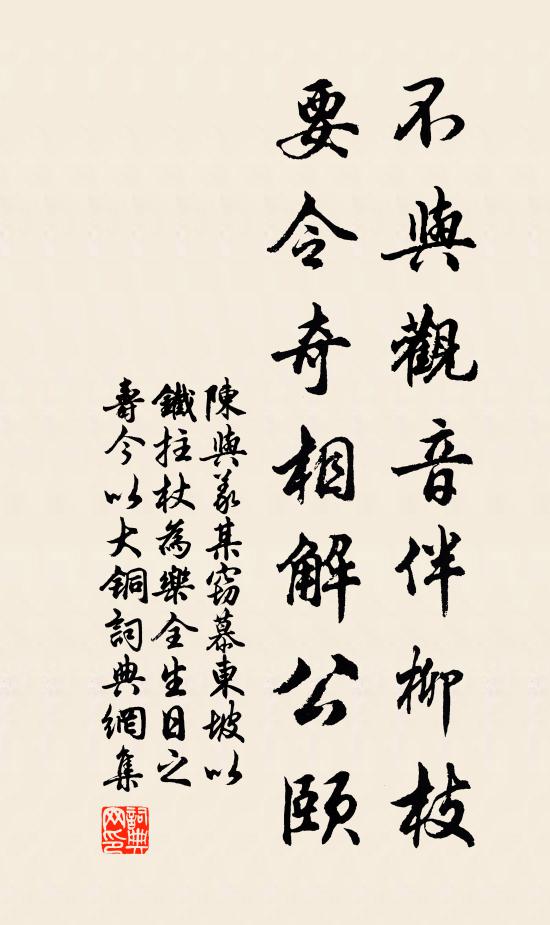 不與觀音伴柳枝
要令奇相解公頤
陳與義某竊慕東坡以
鐵拄杖為樂全生日之
壽今以大銅詞典網集
詞典
网印